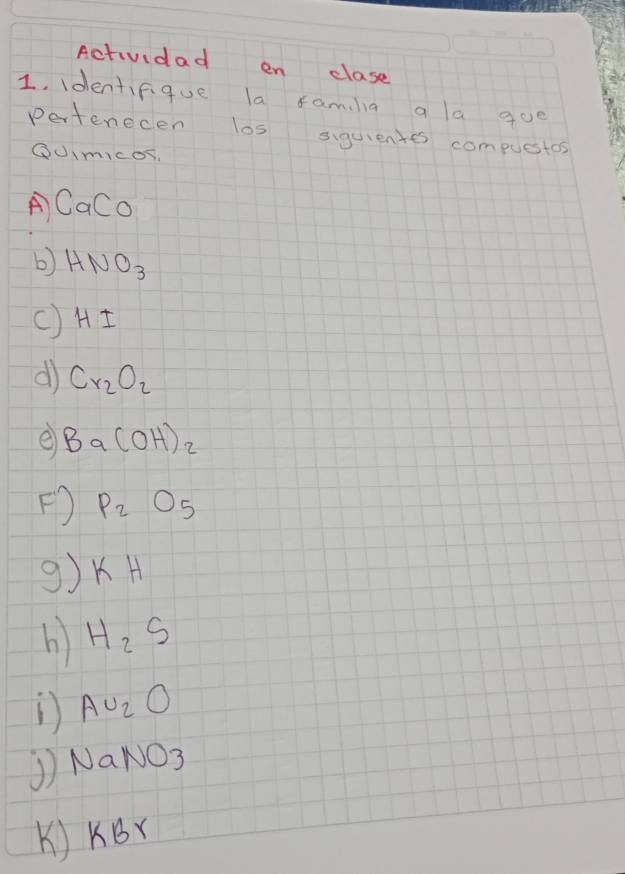 Actividad en clase
1. identifique la familia a la que
pertenecen los siguientes compuestos
Químicos.
A) CaCO
b) HNO3
C) HI
d) Cr2O2
e) Ba(OH)2
F) P2 O5
g) KH
h) H2 S
i) AU2 O
j) NaNO3
K) KBr